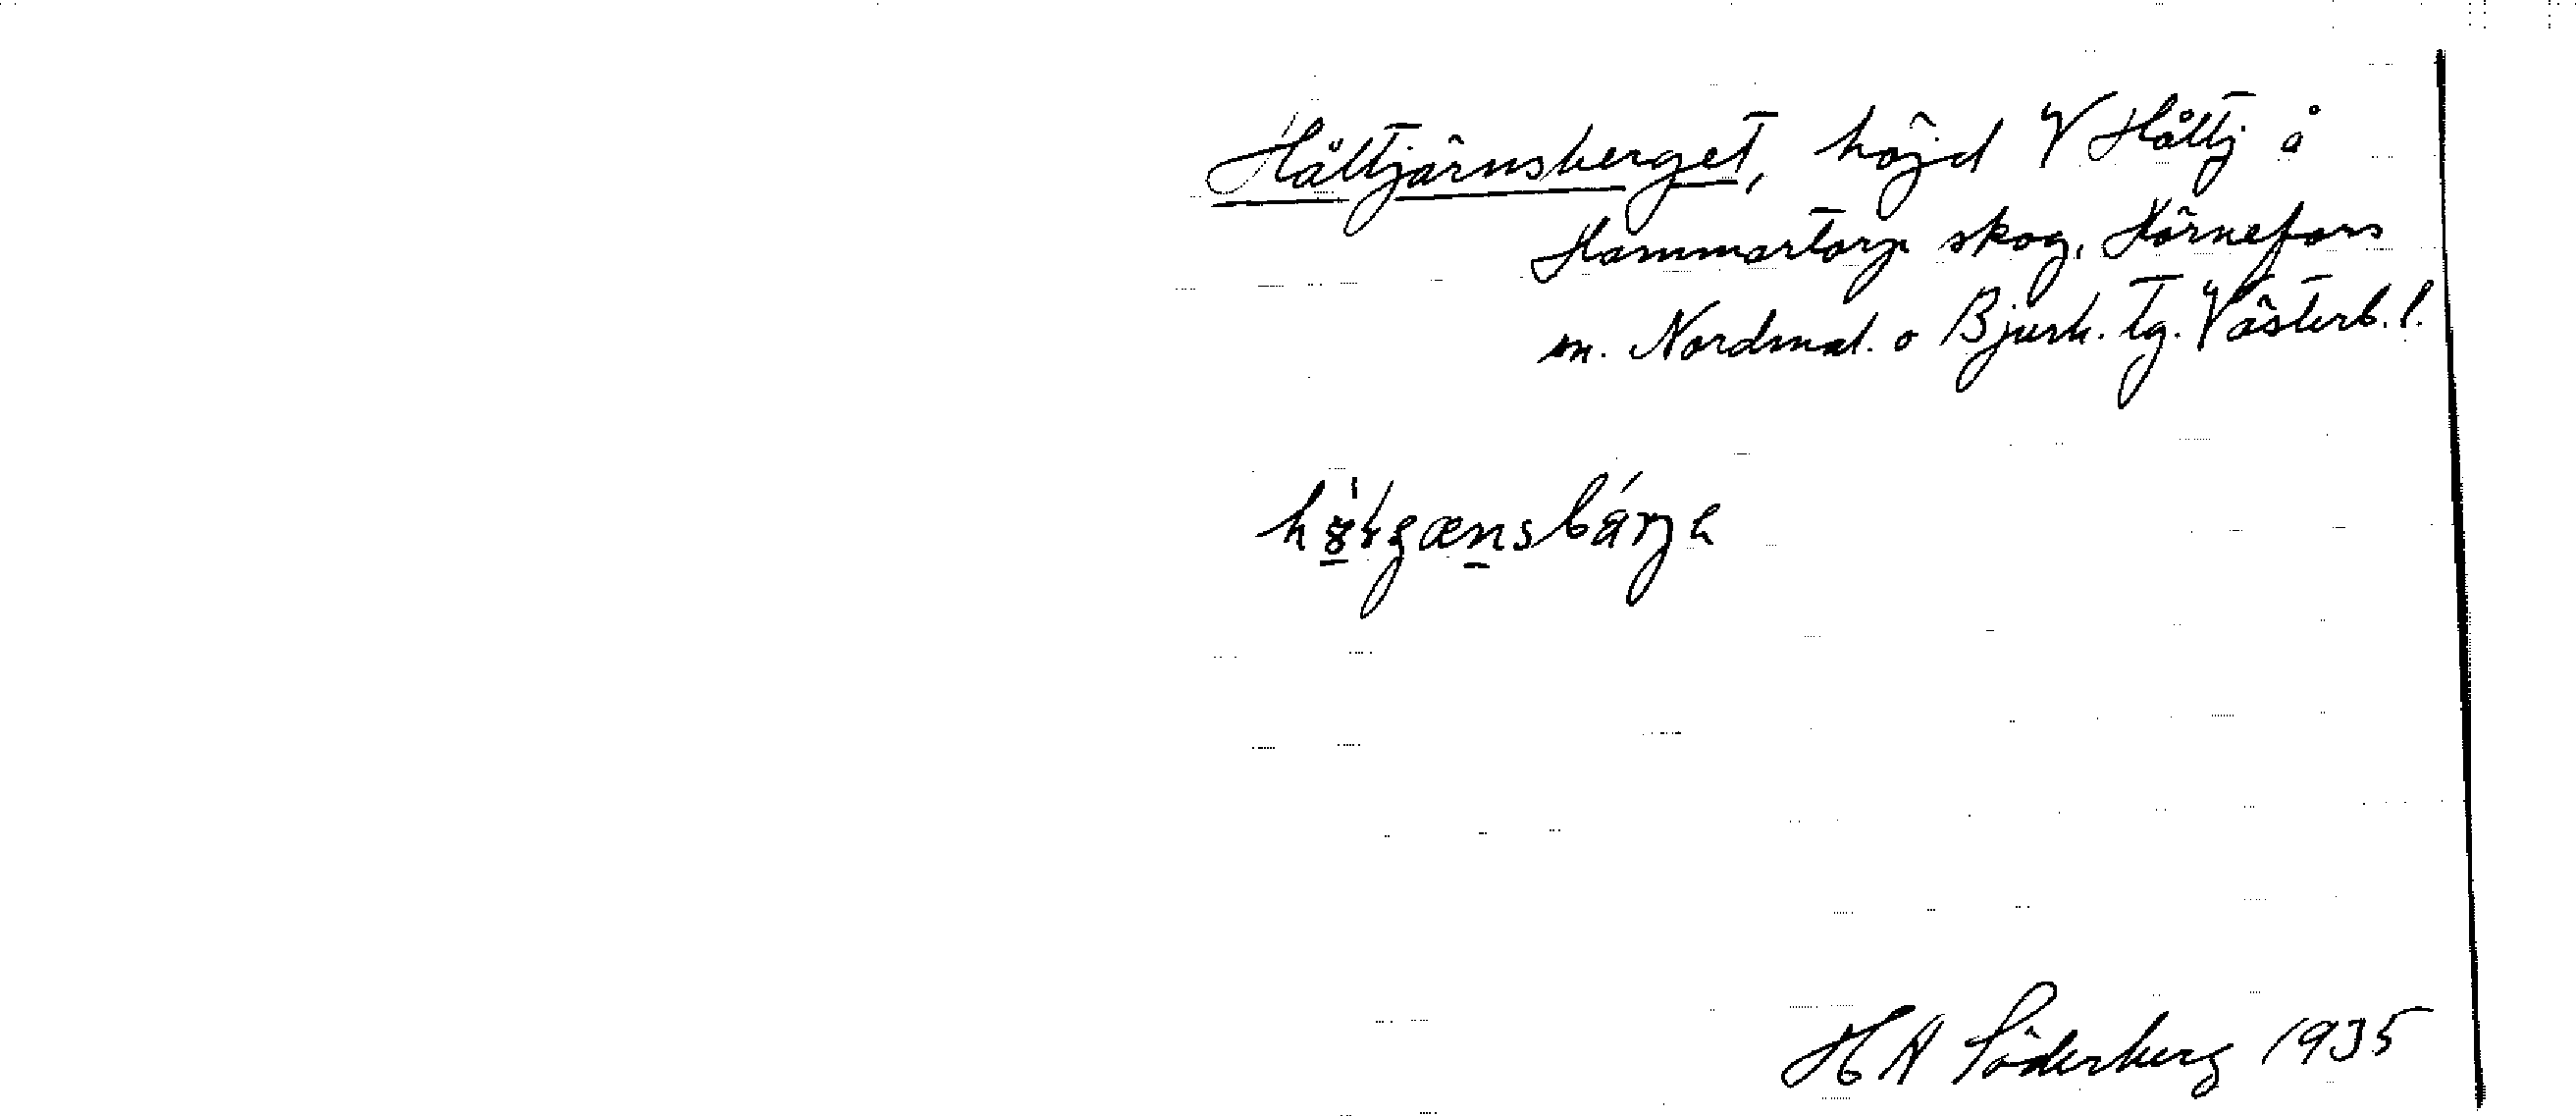 Håltjärnsberget, höjd V Håltj å
Hammartorp skog, Hörnefors
sn. Nordmal. o Bjurh. tg. Västerb. l.
H A Söderberg 1935